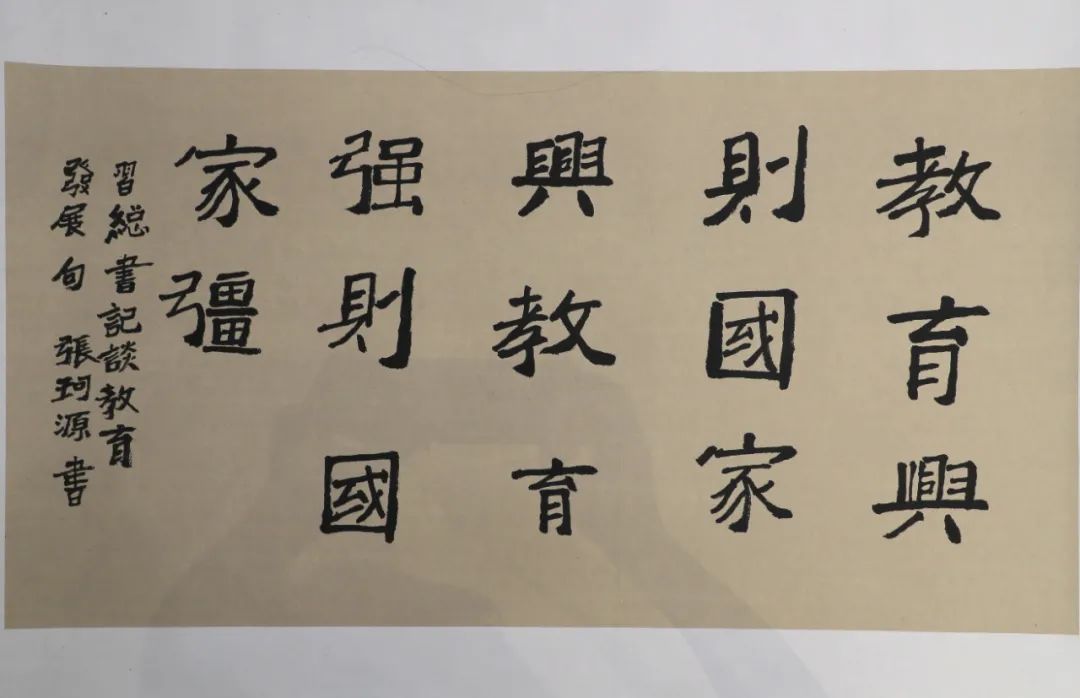 教育興
則國家
興教育
强則國
家彊
習総書記談教育
發展句 張珂源書